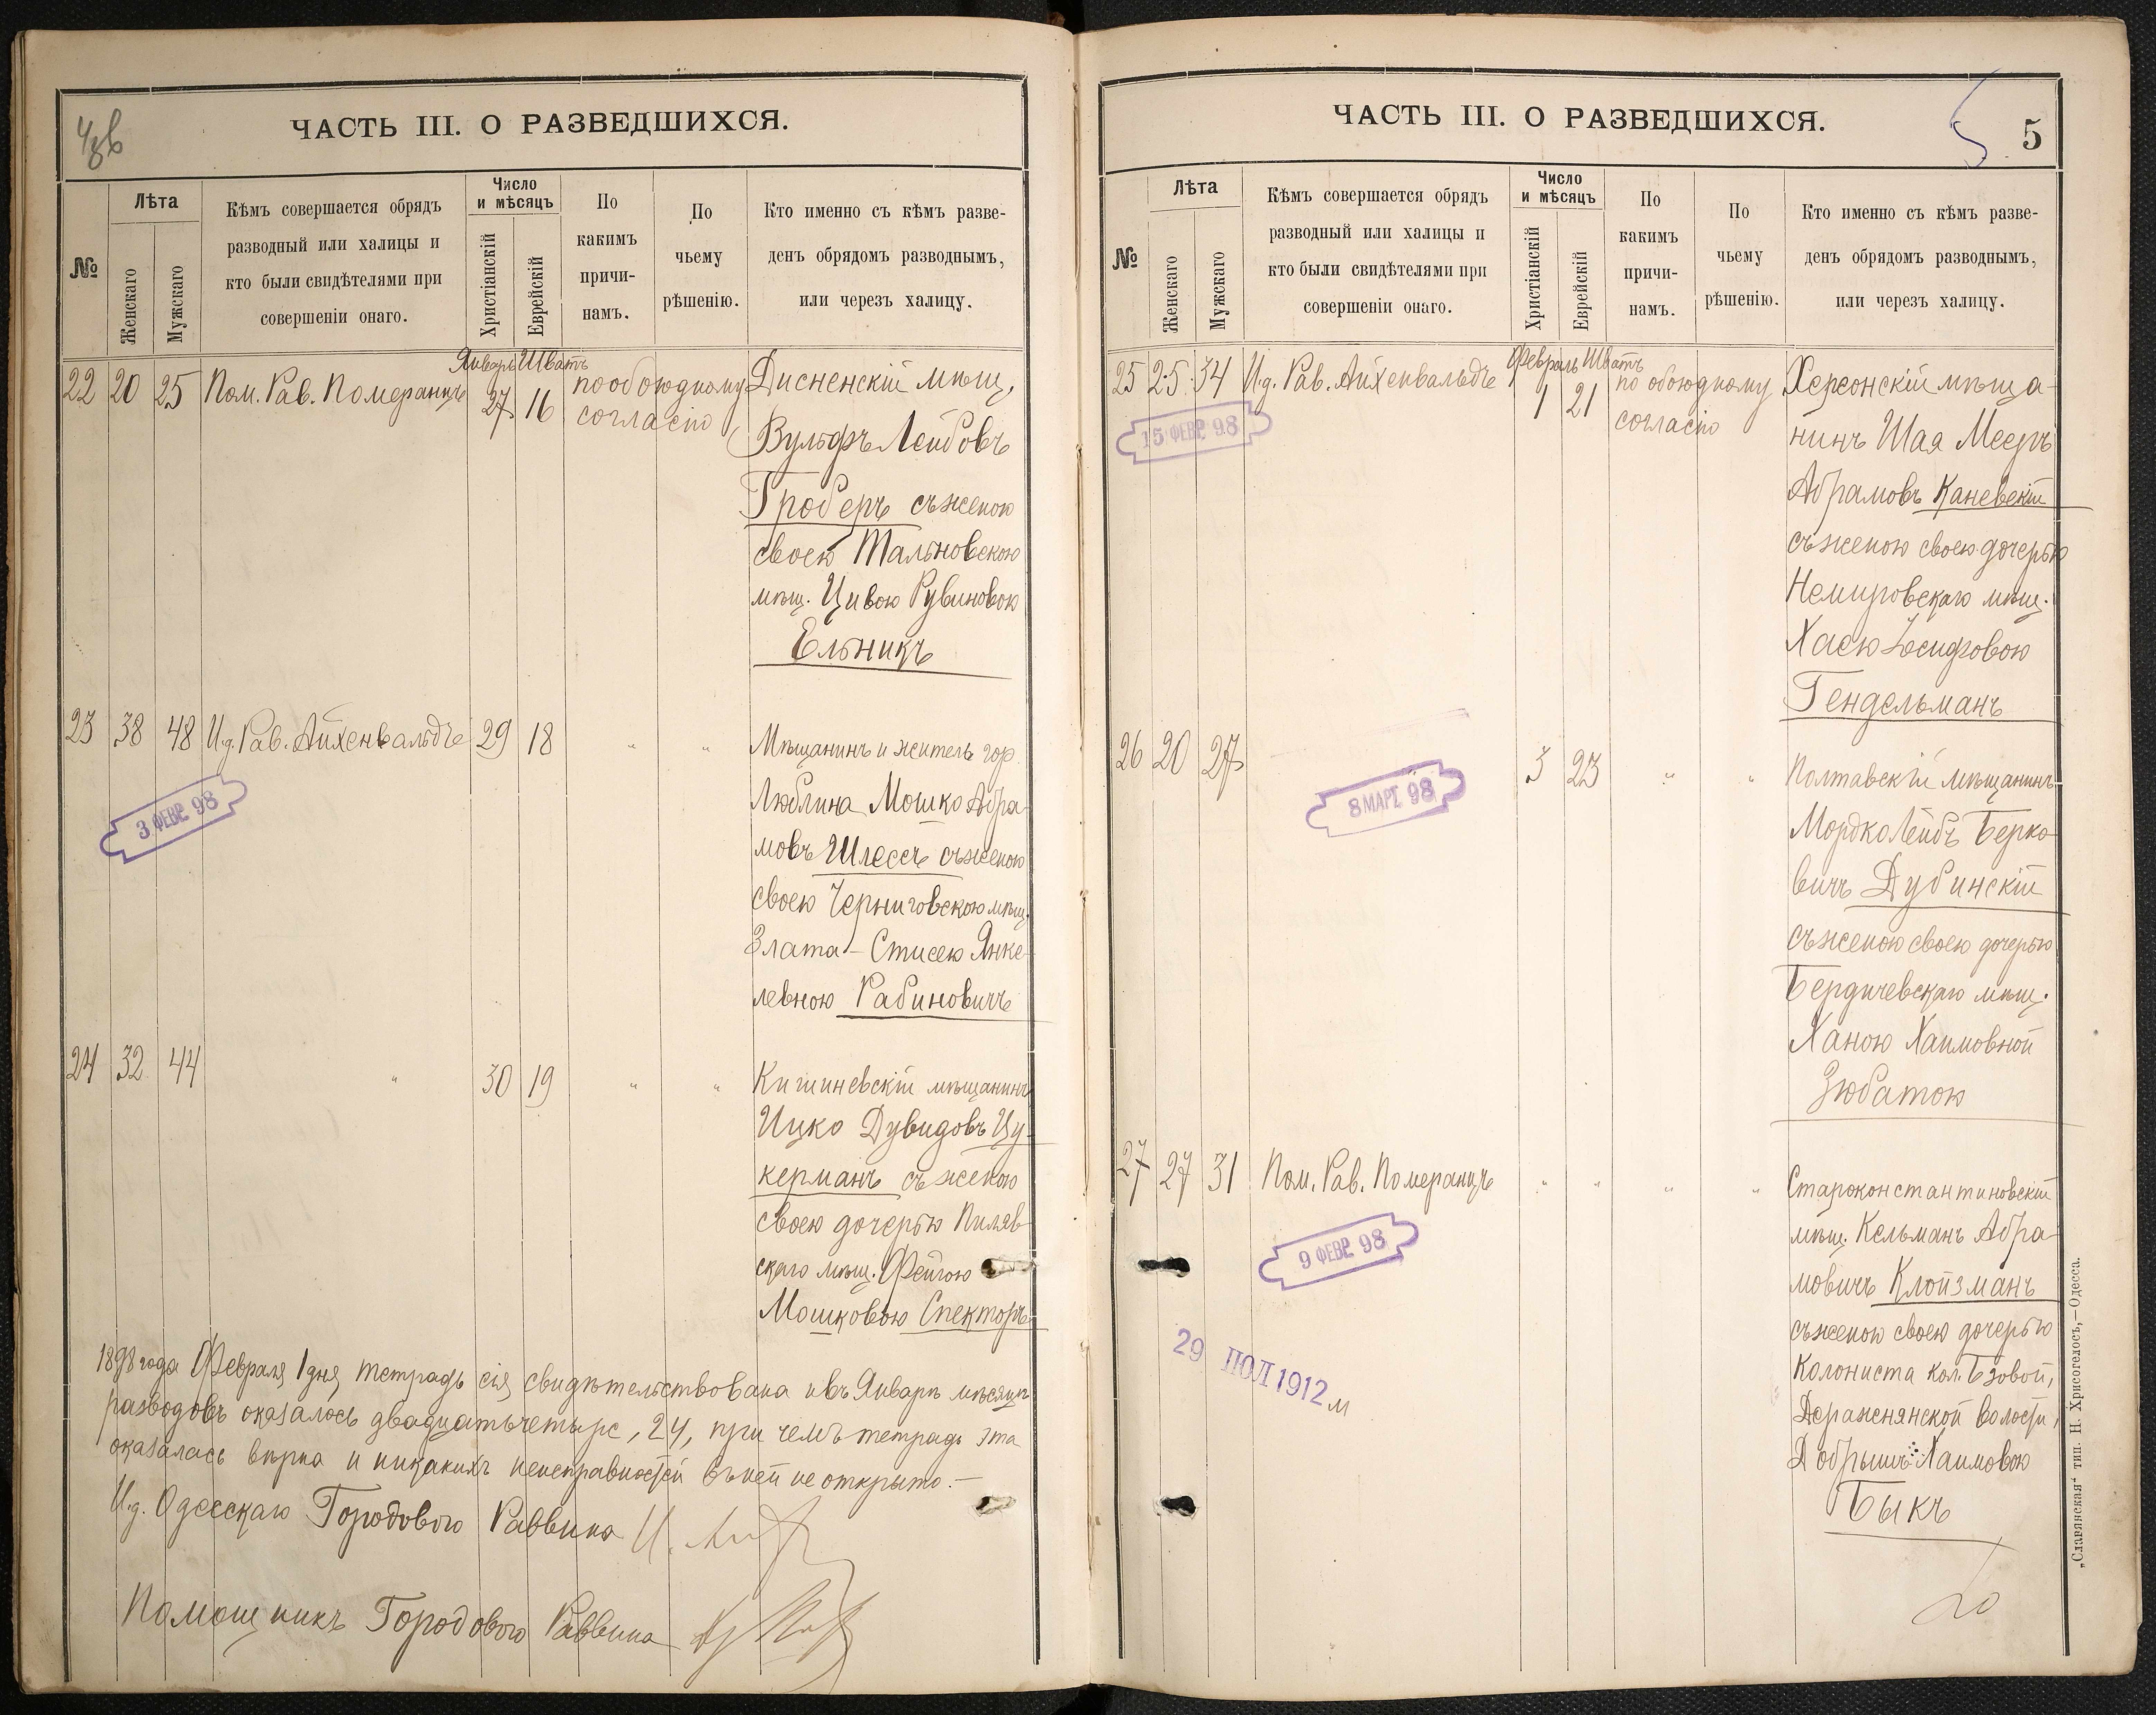 4зв
ЧАСТЬ III. О РАЗВЕДШИХСЯ.
№
Лѣта
Женскаго
Мужскаго
Кѣмъ совершается обрядъ
разводный или халицы и
кто были свидѣтелями при
совершеніи онаго.
Число
и мѣсяцъ
Христіанскій
Еврейскій
По
какимъ
причи-
намъ.
По
чьему
рѣшенію.
Кто именно съ кѣмъ разве-
денъ обрядомъ разводнымъ,
или черезъ халицу.
Январь Шватъ
22 20 25 Пом. Рав. Померанцъ 27 16 по обоюдному
согласію
Дисненскій мѣщ.
Вульфъ Лейбовъ
Гроберъ съ женою
своею Тальновскою
мѣщ. Цивою Рувиновою
Ельникъ
23 38 48 И.д. Рав. Айхенвальдъ 29 18 " "
Мѣщанинъ и житель гор.
Люблина Мошко Абра-
мовъ Шлессъ съ женою
своею Черниговскою мѣщ.
Злата-Стисею Янке-
левною Рабиновичъ
3 ФЕВР. 98
24 32 44 " 30 19 " "
Кишиневскій мѣщанинъ
Ицко Дувидовъ Цу-
керманъ съ женою
своею дочерью Пиляв-
скаго мѣщ. Фейгою
Мошковою Спекторъ
1898 года Февраля 1 дня тетрадь сія свидѣтельствована и въ Январѣ мѣсяцѣ
разводовъ оказалось двадцать четыре, 24, при чемъ тетрадь эта
оказалась вѣрна и никакихъ неисправностей въ ней не открыто.—
И.д. Одесскаго Городового Раввина
Помощникъ Городового Раввина
ЧАСТЬ III. О РАЗВЕДШИХСЯ.
5
5
№
Лѣта
Женскаго
Мужскаго
Кѣмъ совершается обрядъ
разводный или халицы и
кто были свидѣтелями при
совершеніи онаго.
Число
и мѣсяцъ
Христіанскій
Еврейскій
По
какимъ
причи-
намъ.
По
чьему
рѣшенію.
Кто именно съ кѣмъ разве-
денъ обрядомъ разводнымъ,
или черезъ халицу.
Февраль Шватъ
25 25 34 И.д. Рав. Айхенвальдъ 1 21 по обоюдному
согласію
15 ФЕВР. 98
Херсонскій мѣща-
нинъ Шая Мееръ
Абрамовъ Каневскій
съ женою своею дочерью
Немировскаго мѣщ.
Хасю Іосифовою
Гендельманъ
26 20 27 3 23 " "
8 МАРТ. 98
Полтавскій мѣщанинъ
Мордко Лейбъ Берко-
вичъ Дубинскій
съ женою своею дочерью
Бердичевскаго мѣщ.
Ханою Хаимовной
Зюбатою
27 27 31 Пом. Рав. Померанцъ " " " "
9 ФЕВР. 98
29 ПОЛ 1912
Староконстантиновскій
мѣщ. Кельманъ Абра-
мовичъ Клойзманъ
съ женою своею дочерью
Колониста кол. Бзовой,
Деражнянской волости,
Добрышъ Хаимовою
Быкъ
„Славянская" тип. Н. Хрисогелосъ,—Одесса.